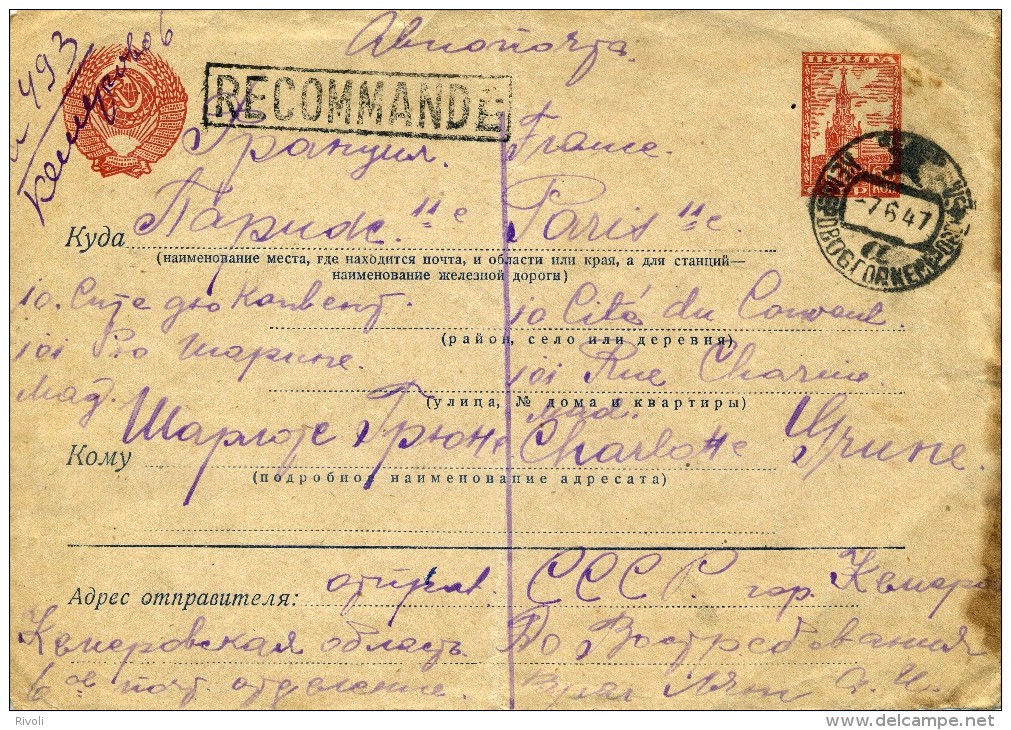 № 493
Кемерово 6
Авиопочта
RECOMMANDÉ
ПОЧТА
КОП
7 6 47
Франция. France.
Куда Париж 11е Paris 11e
(наименование места, где находится почта, и области или края, а для станций—
наименование железной дороги)
10. Сите дю Конвент. 10 Cité du Convent.
(район, село или деревня)
101 Рю Шароне. 101 Rue Charone.
Мад. mad.
(улица, № дома и квартиры)
Кому Шарлотте Грюне Charlotte Grune.
(подробное наименование адресата)
Адрес отправителя: отправ. СССР. гор. Кемеро
Кемеровская область До Востребования
6ое почт. отделение. Врач Лят
Rivoli
delcampe.net